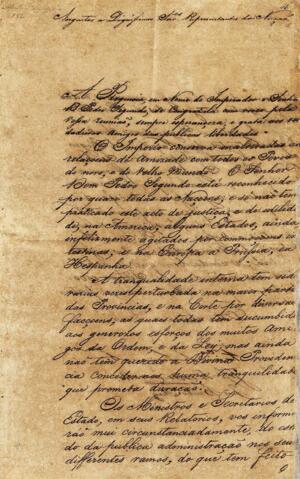 Augustos e Digníssimos Snres Representantes da Nação
A Regencia, em Nome do Imperador o Senhor
D. Pedro Segundo, se Congratula com vosco pela
vossa reunião, sempre esperançosa, e grata aos ver
dadeiros Amigos das publicas liberdades.
O Imperio conserva inalteradas as
relaçoens de Amizade com todos os Povos
do novo, e do Velho Mundo. O Senhor
Dom Pedro Segundo está reconhecido
por quasi todas as Naçoens, e se não tem
praticado este acto de justiça, e de
de, na America, alguns Estados, ainda
infelizmente agitados por commoçoens in
testinas, e na Europa a Prussia, e a
Hespanha.
A tranquilidade interna tem sido
varias vezes perturbada na maior parte
das Provincias, e na Corte por diversas
facçoens, as quaes todas tem sucumbido
aos generosos esforços dos muitos Ami
gos da Ordem, e da Ley; mas ainda
não tem querido a Divina Providen
cia conceder-nos huma tranquilidade
que prometa duração.
Os Ministros e Secretarios de
Estado, em seus Relatorios, vos informa
rão mui circunstanciadamente, do esta
do da publica administração nos seus
differentes ramos, do que tem feito